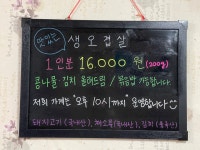 맛있는
생오겹살
1인분 16.000원 (200g)
콩나물·김치 올려드림 / 볶음밥 가능합니다
저희 가게는 "오후 10시까지 운영합니다
돼지고기 (국내산), 김치 (중국산)